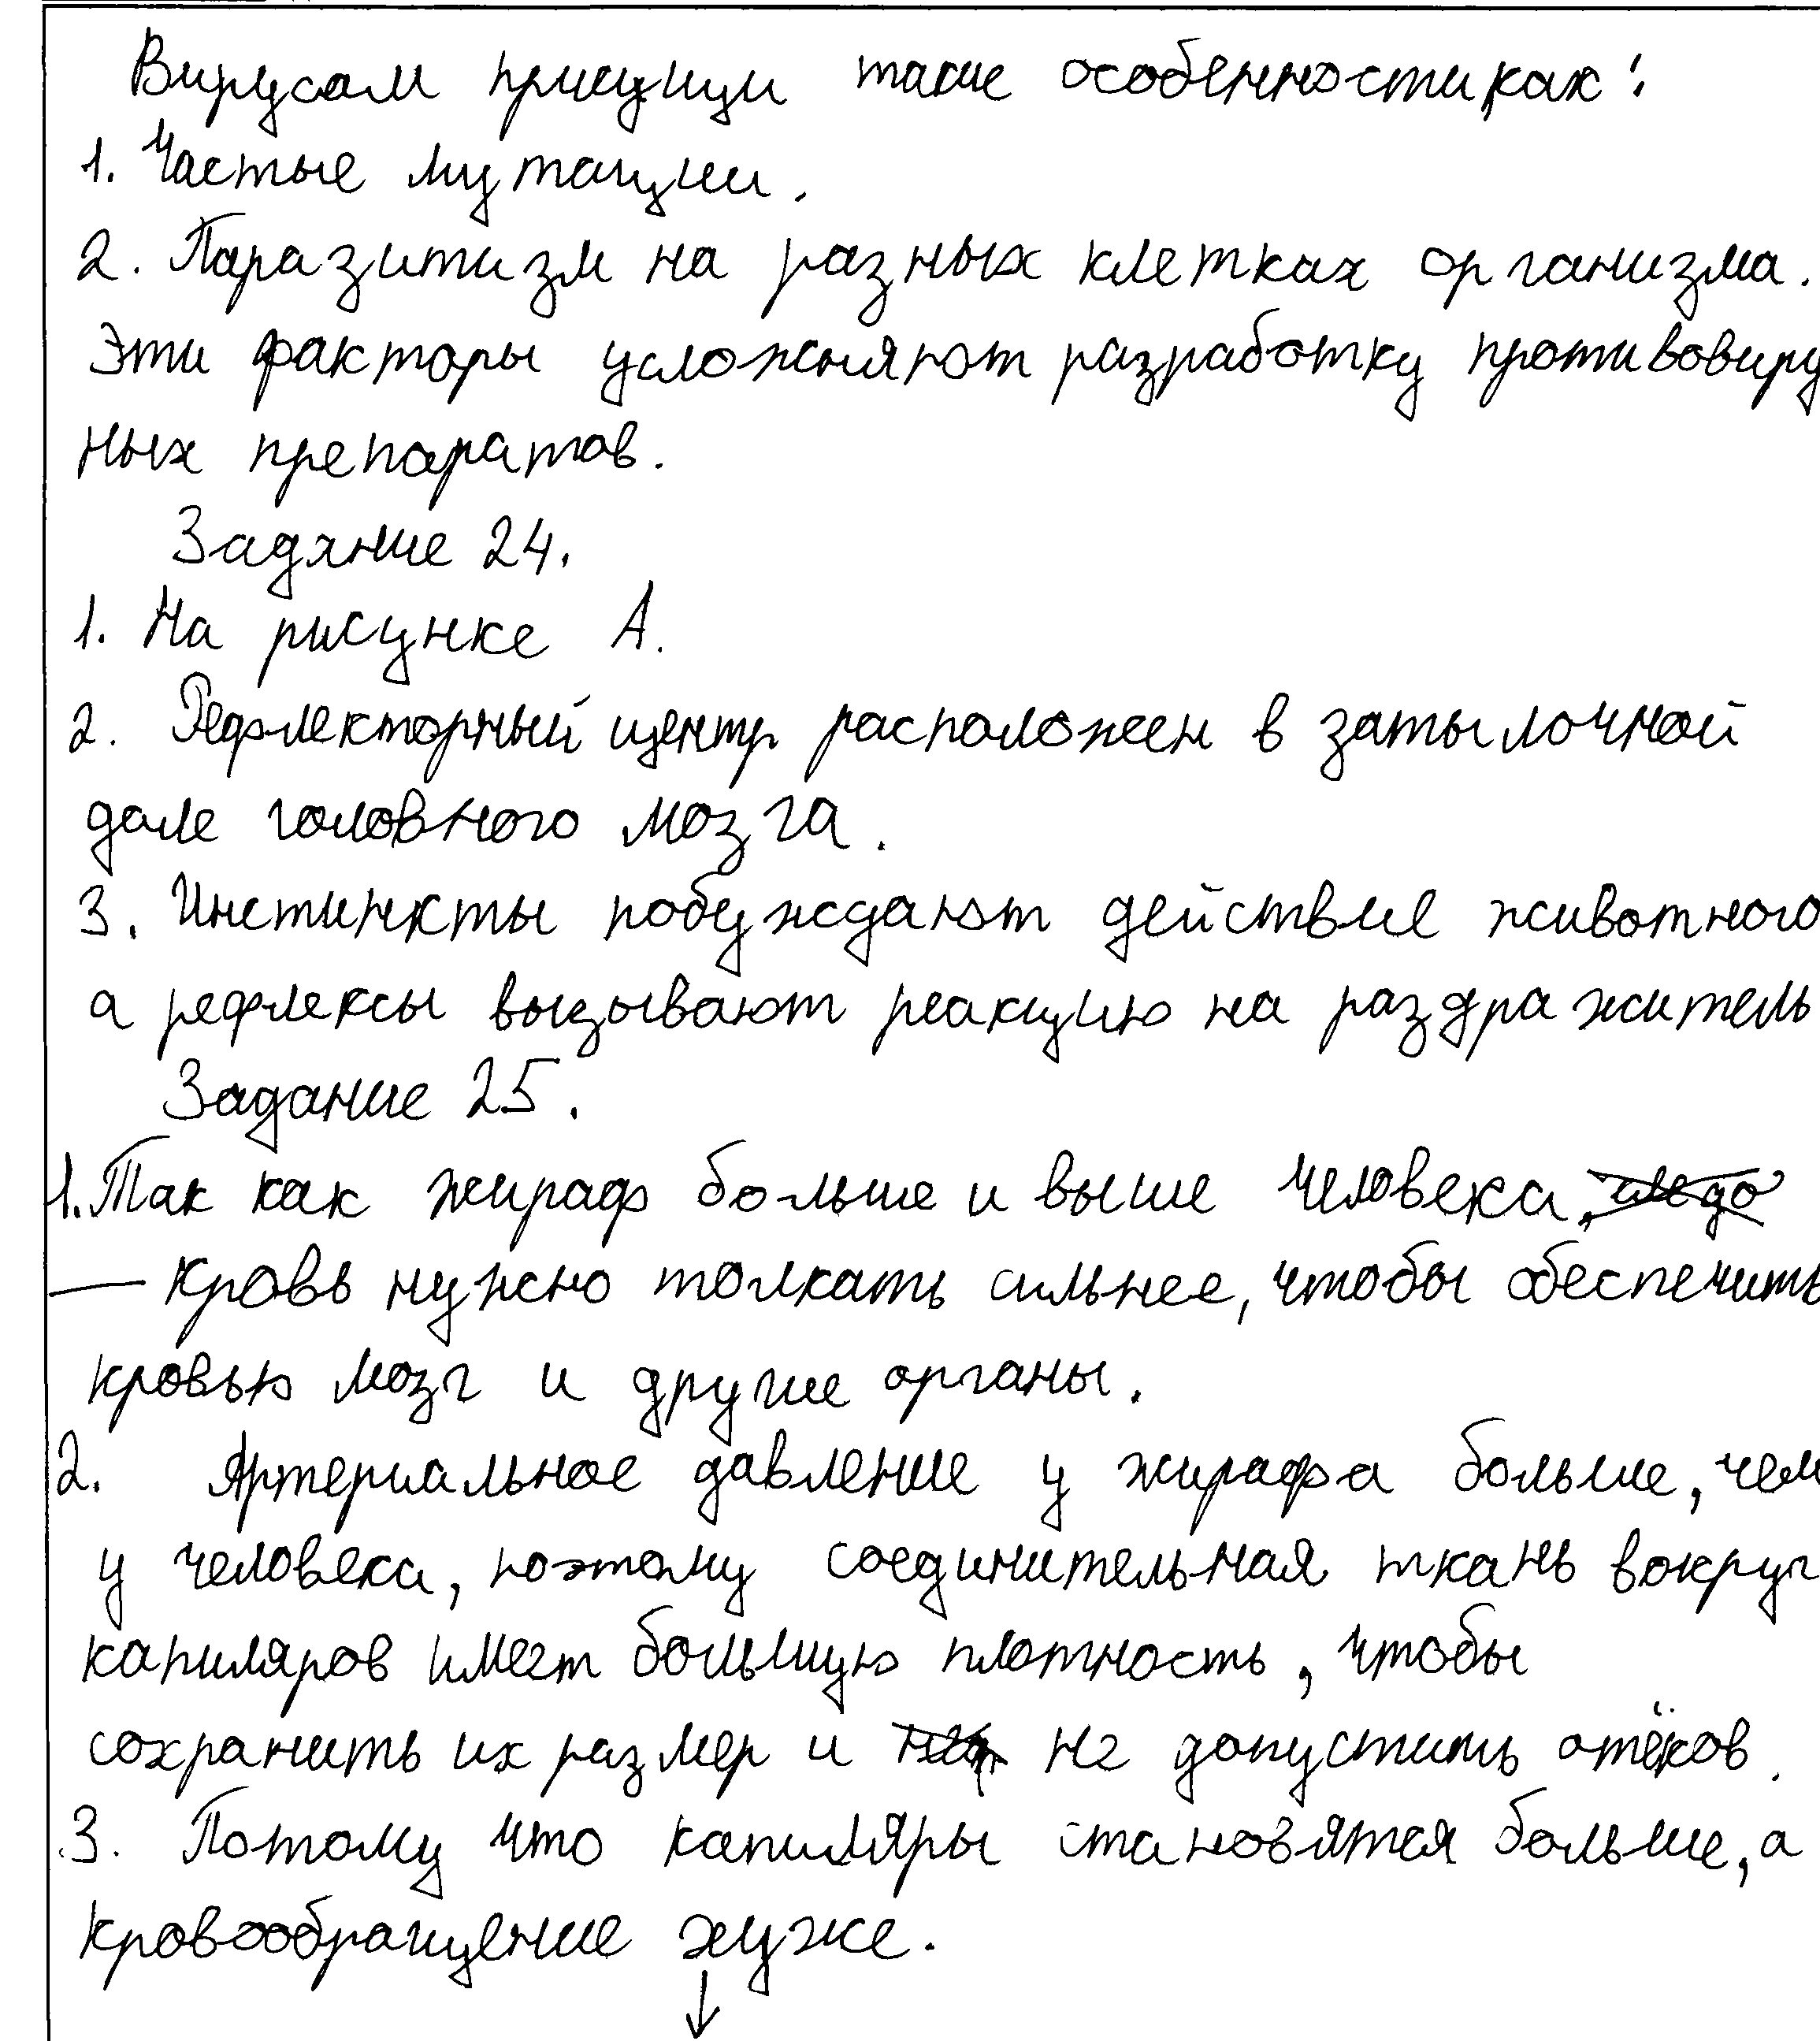 Вирусам присущи такие особенности, как:
1. Частые мутации.
2. Паразитизм на разных клетках организма.
Эти факторы усложняют разработку противовиру
ных препаратов.
Задание 24.
1. На рисунке А.
2. Рефлекторный центр расположен в затылочной
доле головного мозга.
3. Инстинкты побуждают действие животного
а рефлексы вызывают реакцию на раздражитель
Задание 25.
1. Так как жираф больше и выше человека,
— кровь нужно толкать сильнее, чтобы обеспечить
кровью мозг и другие органы.
2. Артериальное давление у жирафа больше, чем
у человека, поэтому соединительная ткань вокруг
капиляров имеет большую плотность, чтобы
сохранить их размер и не допустить отёков.
3. Потому что капиляры становятся больше, а
кровообращение хуже.